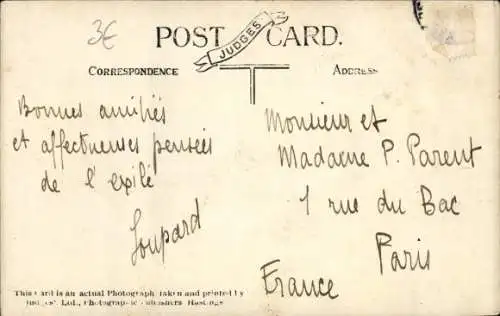 3€
POST CARD.
JUDGES
CORRESPONDENCE
ADDRESS
Bonnes amitiés
et affectueuses pensées
de l'exilé
Loupard
Monsieur et
Madame P. Parent
1 rue du Bac
Paris
France
This card is an actual Photograph, taken and printed by
Judges', Ltd., Photographic Publishers Hastings